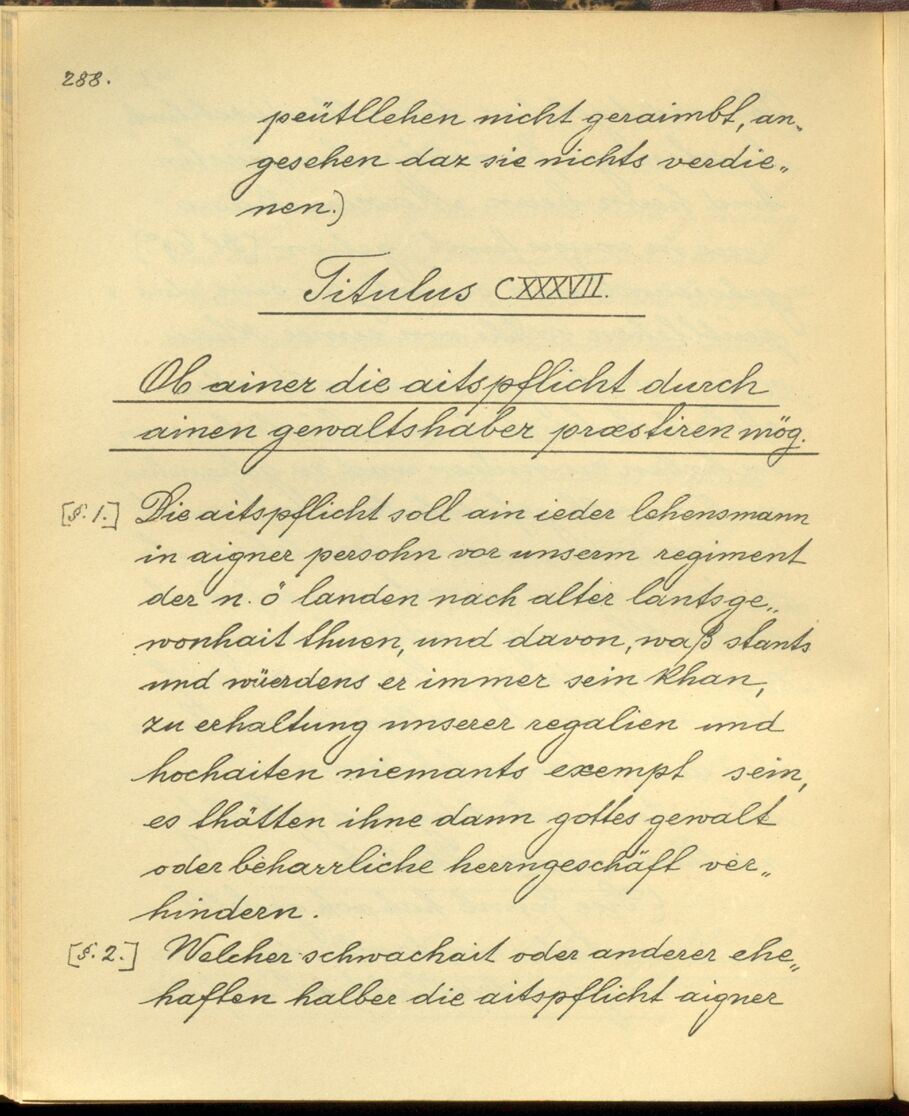 288.
peütllehen nicht geraimbt, an„
gesehen daz sie nichts verdie„
nen.)
Titulus CXXXVII.
Ob ainer die aitspflicht durch
ainen gewaltshaber præstiren mög.
[§. 1.] Die aitspflicht soll ain ieder lehensmann
in aigner persohn vor unserm regiment
der n. ö landen nach alter lantsge„
wonhait thuen, und davon, waß stants
und würdens er immer sein khan,
zu erhaltung unserer regalien und
hochaiten niemants exempt sein,
es thätten ihne dann gottes gewalt
oder beharrliche herrngeschäft ver„
hindern.
[§. 2.] Welcher schwachait oder anderer ehe„
haften halber die aitspflicht aigner